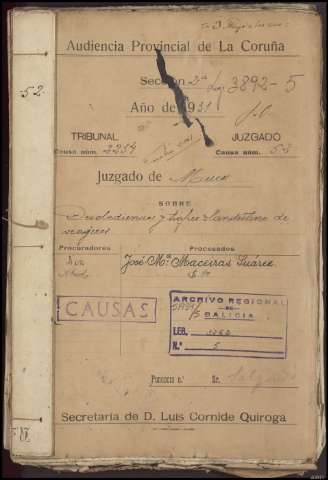 Audiencia Provincial de La Coruña
Sección 2ª Leg 3892-5
52
Año de 1931
TRIBUNAL JUZGADO
Causa núm. 2254 Causa núm. 52
Juzgado de Muros
SOBRE
Desobediencia y tráfico clandestino de
viajeros
Procuradores Procesados
José Mª Maceiras Suárez
CAUSAS
ARCHIVO REGIONAL
DE
GALICIA
LEG.
N.º 5
Ponencia n.º Sr. Salgado
Secretaria de D. Luis Cornide Quiroga